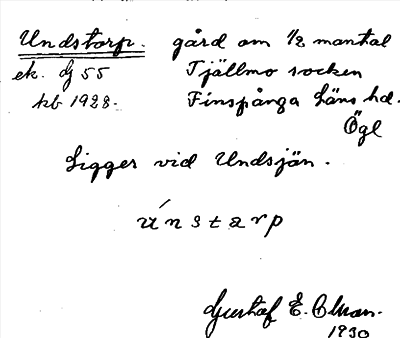 Undstorp. gård om 1/2 mantal
ek. bj 55 Tjällmo socken
kb 1928. Finspånga läns hd.
Ögl
Ligger vid Undsjön.
únstarp
Gustaf E. Ohman.
1930